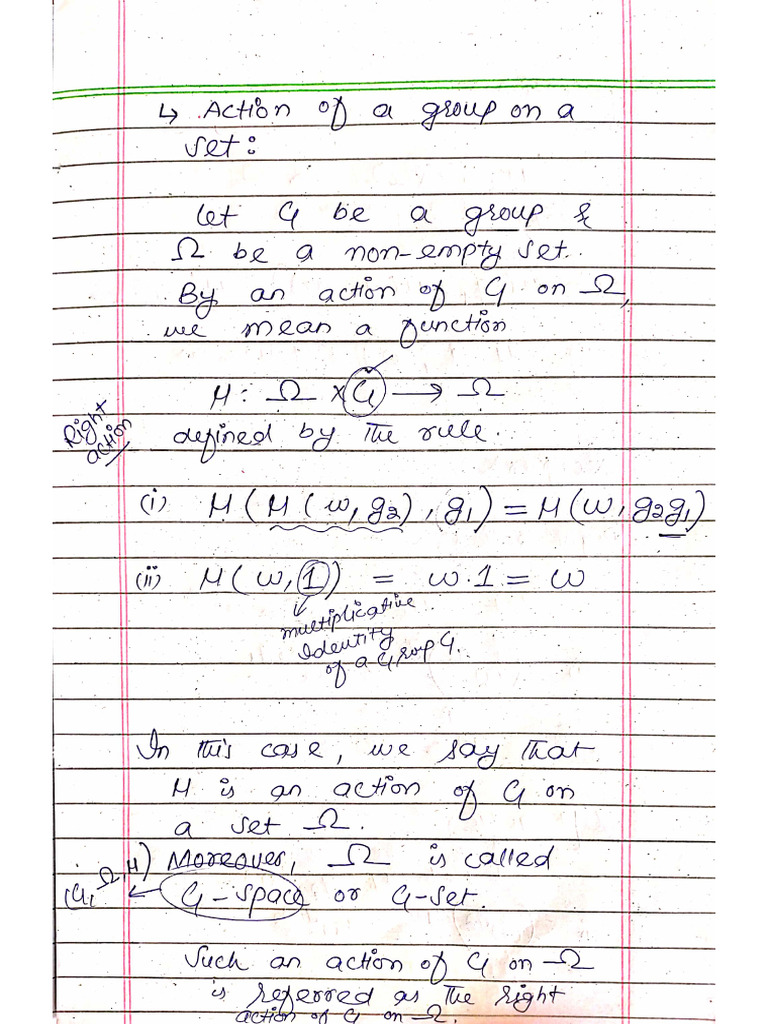 ↳ Action of a group on a
set:
Let G be a group &
Ω be a non-empty set.
By an action of G on Ω,
we mean a function
μ: Ω × G → Ω
Right
action
defined by the rule.
(i) μ(μ(ω, g₂), g₁) = μ(ω, g₂g₁)
(ii) μ(ω, 1) = ω.1 = ω
multiplicative
Identity
of a Group G.
In this case, we say that
μ is an action of G on
a set Ω.
Moreover, Ω is called
(G, Ω, μ) ← G-space or G-set.
Such an action of G on Ω
is referred as the right
action of G on Ω.